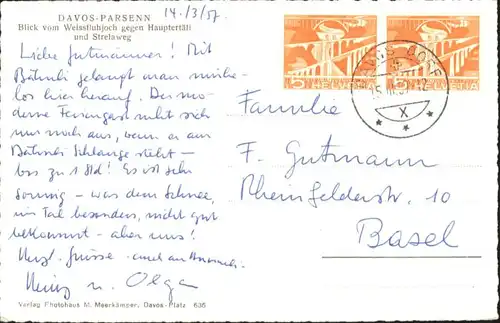 DAVOS-PARSENN
Blick vom Weissfluhjoch gegen Hauptertäli
und Strelaweg
14./3/57.
Liebe Gutmänner! Mit
Bähnli gelangt man mühe-
los hier herauf. Der mo-
derne Feriengast ruht sich
nur noch aus, wenn er am
Bähnli Schlange steht –
bis zu 1 Std! Es ist sehr
sonnig – was dem Schnee,
im Tal besonders, nicht gut
bekommt – aber uns!
Herzl. Grüsse – auch an
Heinz u. Olga
Verlag Photohaus M. Meerkämper, Davos-Platz 636
HELVETIA 5
HELVETIA 5
DAVOS DORF
X
Familie
F. Gutmann
Rheinfelderstr. 10
Basel